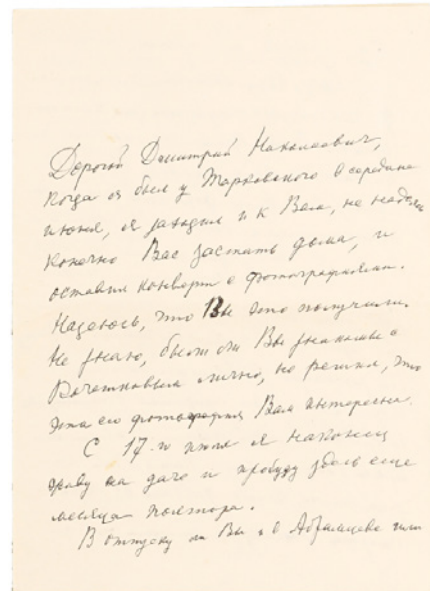 Дорогой Дмитрий Николаевич,
Когда я был у Тарковского в середине
июня, я заходил и к Вам, не надеясь
конечно Вас застать дома, и
оставил конверт с фотографиями.
Надеюсь, что Вы это получили.
Не знаю, были ли Вы знакомы с
лично, но решил, что
эта его фотография Вам интересна.
С 17-го июля я наконец
живу на даче и пробуду здесь еще
месяца полтора.
В отпуску ли Вы и в Абрамцеве или